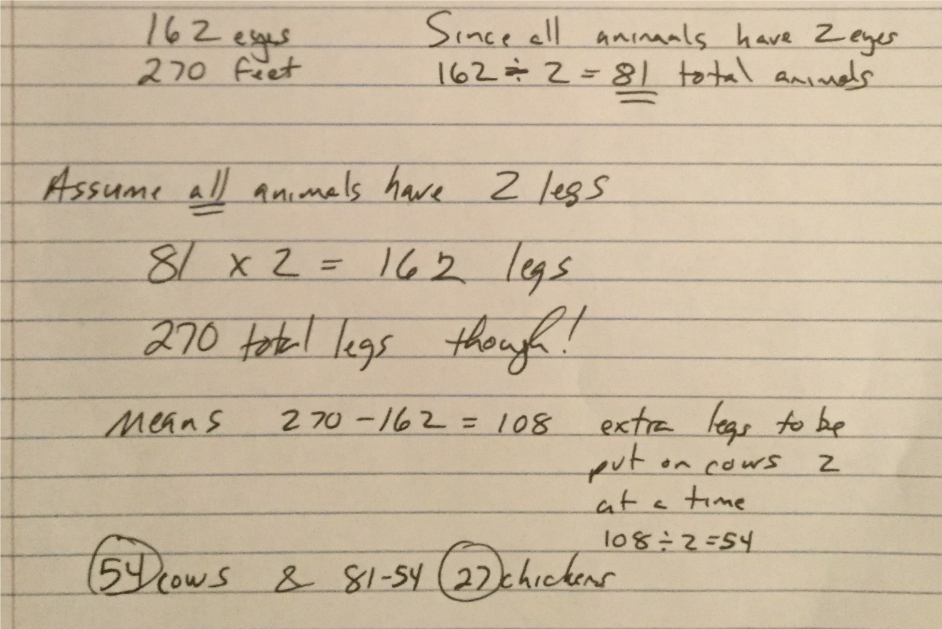 162 eyes
270 feet
Since all animals have 2 eyes
162 ÷ 2 = 81 total animals
Assume all animals have 2 legs
81 x 2 = 162 legs
270 total legs though!
Means 270 - 162 = 108 extra legs to be
put on cows 2
at a time
108 ÷ 2 = 54
54 cows & 81-54 27 chickens